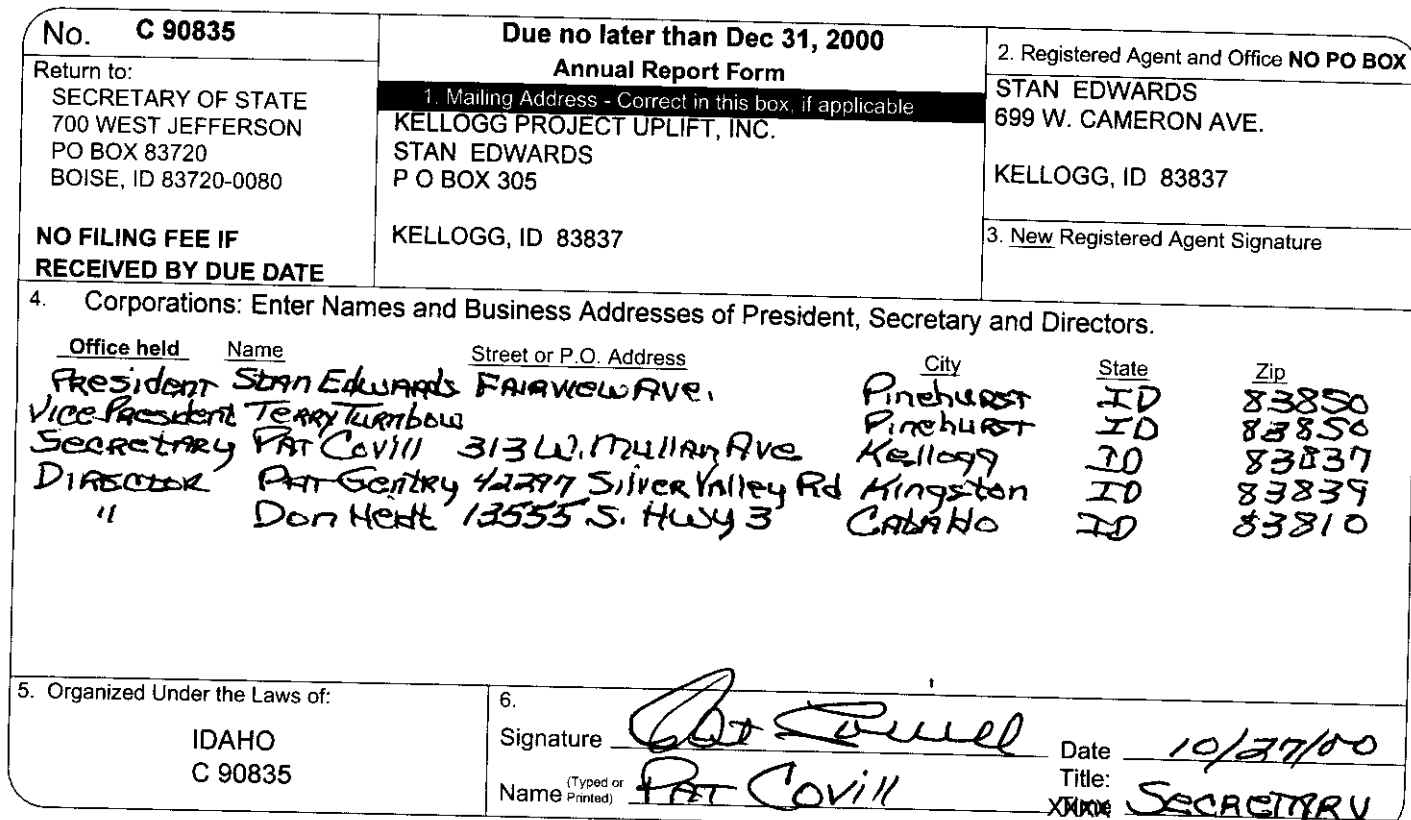 No. C 90835
Return to:
SECRETARY OF STATE
700 WEST JEFFERSON
PO BOX 83720
BOISE, ID 83720-0080
NO FILING FEE IF
RECEIVED BY DUE DATE
Due no later than Dec 31, 2000
Annual Report Form
1. Mailing Address - Correct in this box, if applicable
KELLOGG PROJECT UPLIFT, INC.
STAN EDWARDS
P O BOX 305
KELLOGG, ID 83837
2. Registered Agent and Office NO PO BOX
STAN EDWARDS
699 W. CAMERON AVE.
KELLOGG, ID 83837
3. New Registered Agent Signature
4. Corporations: Enter Names and Business Addresses of President, Secretary and Directors.
Office held Name Street or P.O. Address City State Zip
President Stan Edwards Ave. Pinehurst ID 83850
Vice President Terry Turnbow Pinehurst ID 83850
Secretary Pat Covill 313 W. Mullan Ave Kellogg ID 83837
Director Pat Gentry 42297 Silver Valley Rd Kingston ID 83839
" Don 13555 S. Hwy 3 ID 83810
5. Organized Under the Laws of:
IDAHO
C 90835
6.
Signature Pat Covill Date 10/27/00
Name (Typed or Printed) Pat Covill Title: Secretary